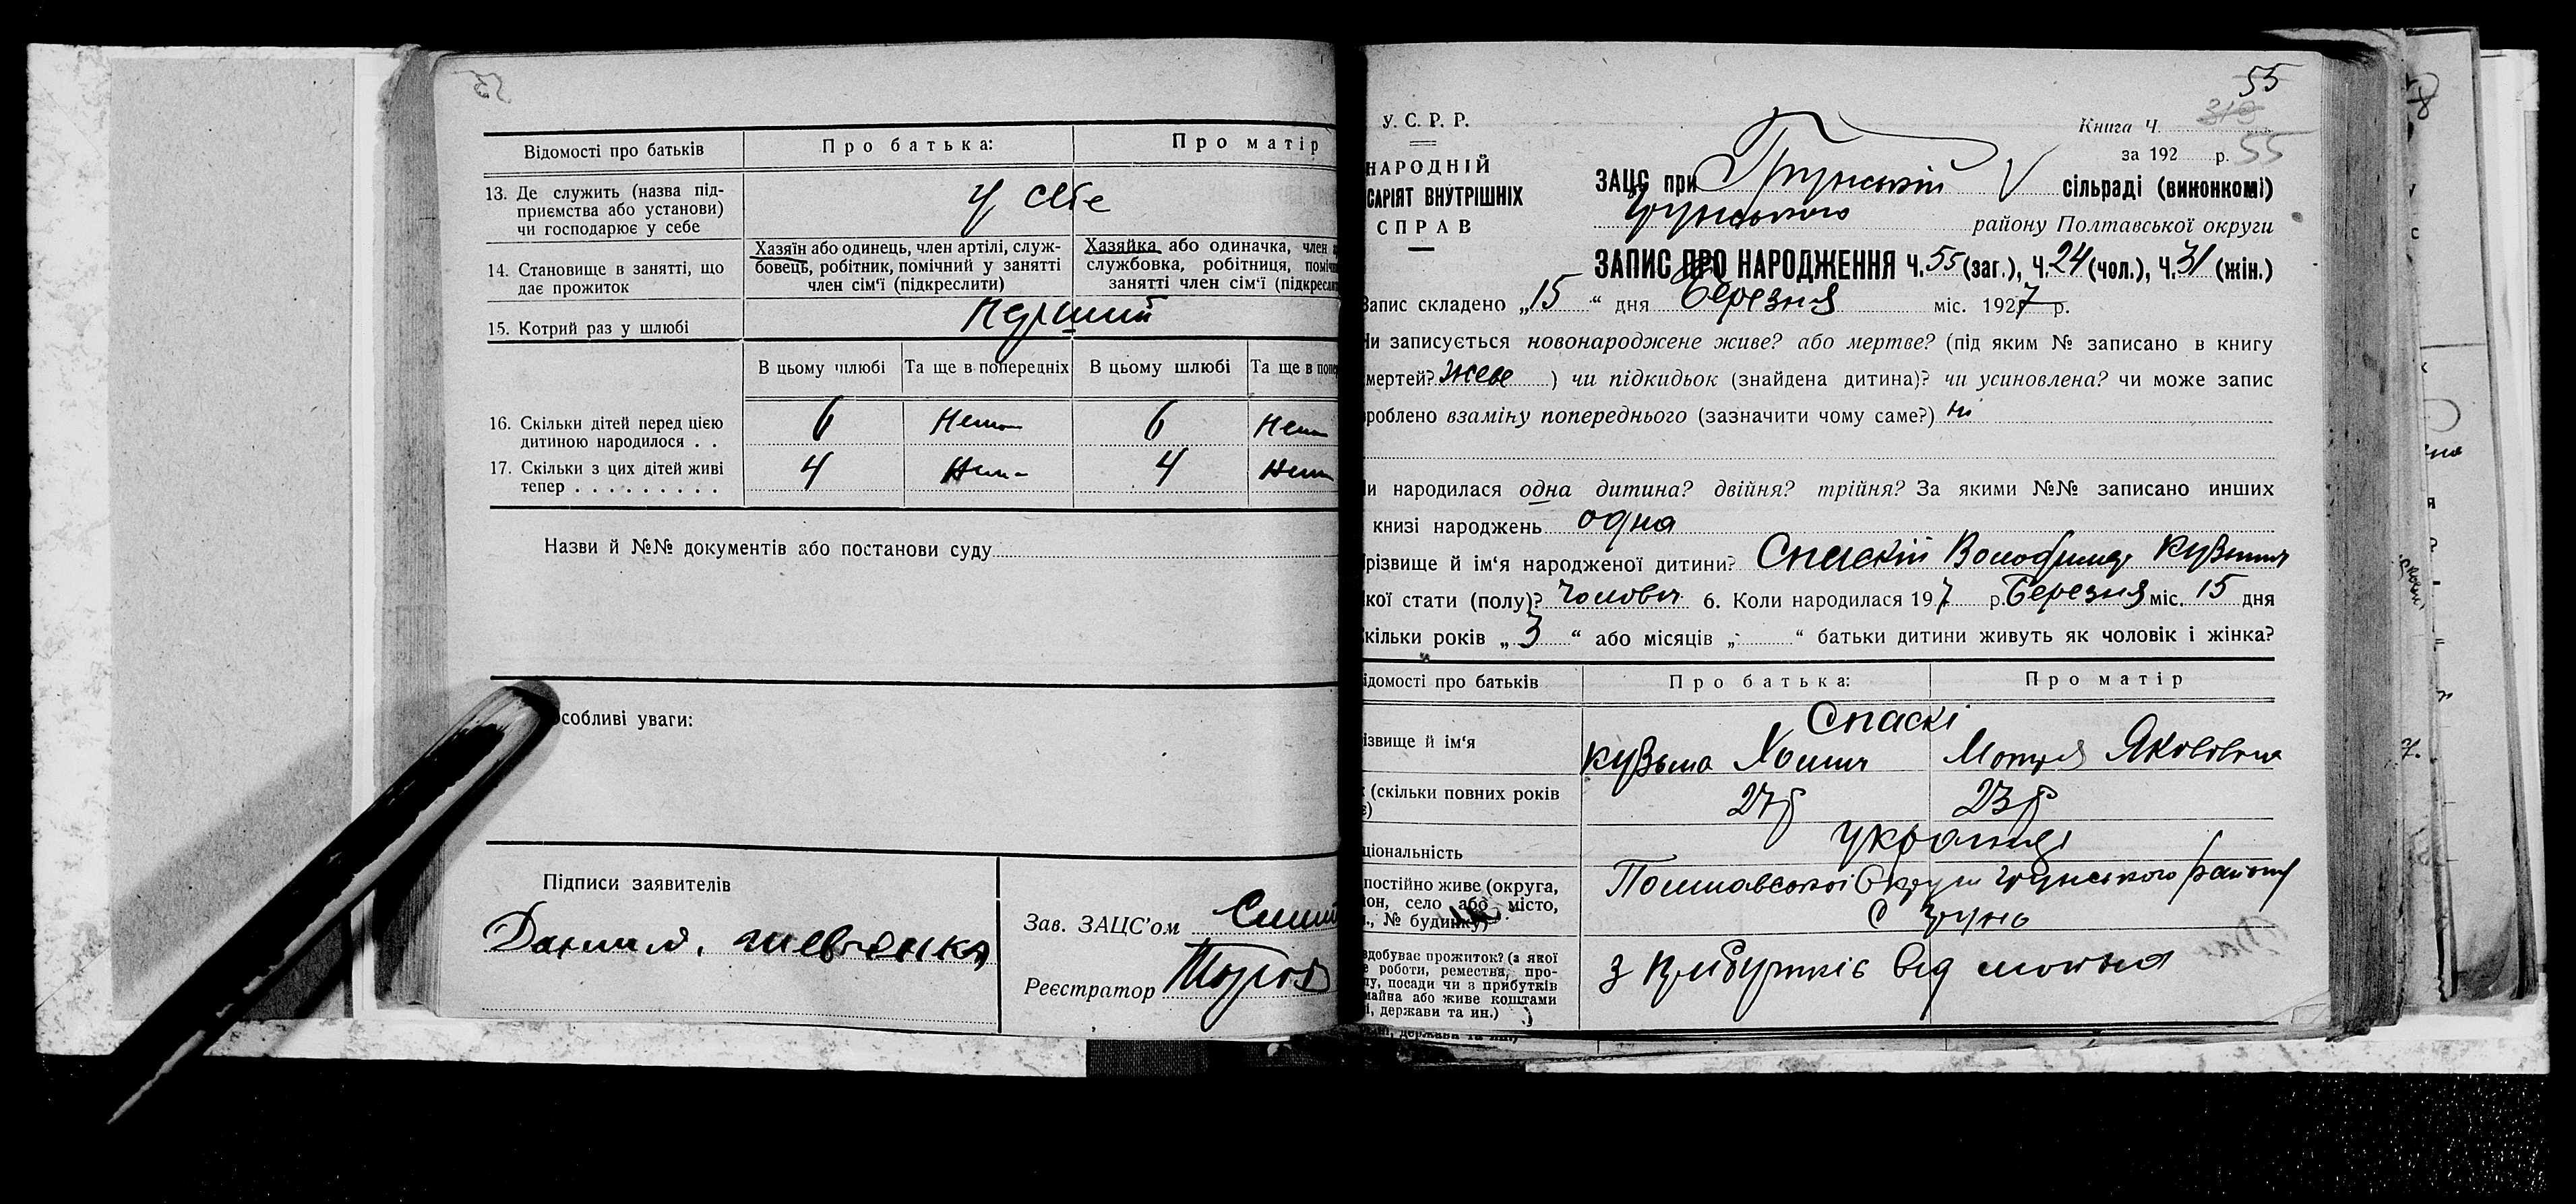 Відомості про батьків
Про батька:
Про матір
13. Де служить (назва під-
приємства або установи)
чи господарює у себе
у себе
14. Становище в занятті, що
дає прожиток
Хазяїн або одинець, член артілі, служ-
бовець, робітник, помічний у занятті
член сім'ї (підкреслити)
Хазяйка або одиначка, член
службовка, робітниця, поміч
занятті член сім'ї (підкресли
15. Котрий раз у шлюбі
перший
В цьому шлюбі
Та ще в попередніх
В цьому шлюбі
Та ще в попе
16. Скільки дітей перед цією
дитиною народилося . .
6 Нема 6 Нема
17. Скільки з цих дітей живі
тепер . . . . . . . . .
4 Нема 4 Нема
Назви й №№ документів або постанови суду
особливі уваги:
Підписи заявителів
Шевченка
Зав. ЗАЦС'ом
Реєстратор
55
У. С. Р. Р.
НАРОДНІЙ
САРІЯТ ВНУТРІШНІХ
СПРАВ
Книга Ч. 310
за 192 р. 55
ЗАЦС при Грунській V сільраді (виконкомі)
Грунського районy Полтавської округи
ЗАПИС ПРО НАРОДЖЕННЯ Ч. 55 (заг.), Ч. 24 (чол.), Ч. 31 (жін.)
Запис складено „15“ дня Березня міс. 1927 р.
Чи записується новонароджене живе? або мертве? (під яким № записано в книгу
смертей? живе ) чи підкидьок (знайдена дитина)? чи усиновлена? чи може запис
зроблено взаміну попереднього (зазначити чому саме?) ні
Чи народилася одна дитина? двійня? трійня? За якими №№ записано инших
книзі народжень одна
Прізвище й ім'я народженої дитини? Спаскій Володимир Кузьмич
Якої стати (полу)? Чоловіч 6. Коли народилася 197 р. Березня міс. 15 дня
Скільки років „3“ або місяців „-“ батьки дитини живуть як чоловік і жінка?
ідомості про батьків
Про батька:
Про матір
ізвище й ім'я
Спаскі
Кузьма Хомич
Мотря Якововна
(скільки повних років
27р
23р
ціональність
українці
постійно живе (округа,
йон, село або місто,
., № будинку)
Полтавської Округи Грунського району
с Грунь
здобуває прожиток? (з якої
роботи, ремества, про-
у, посади чи з прибутків
майна або живе коштами
, держави та ин.)
з прибутків від